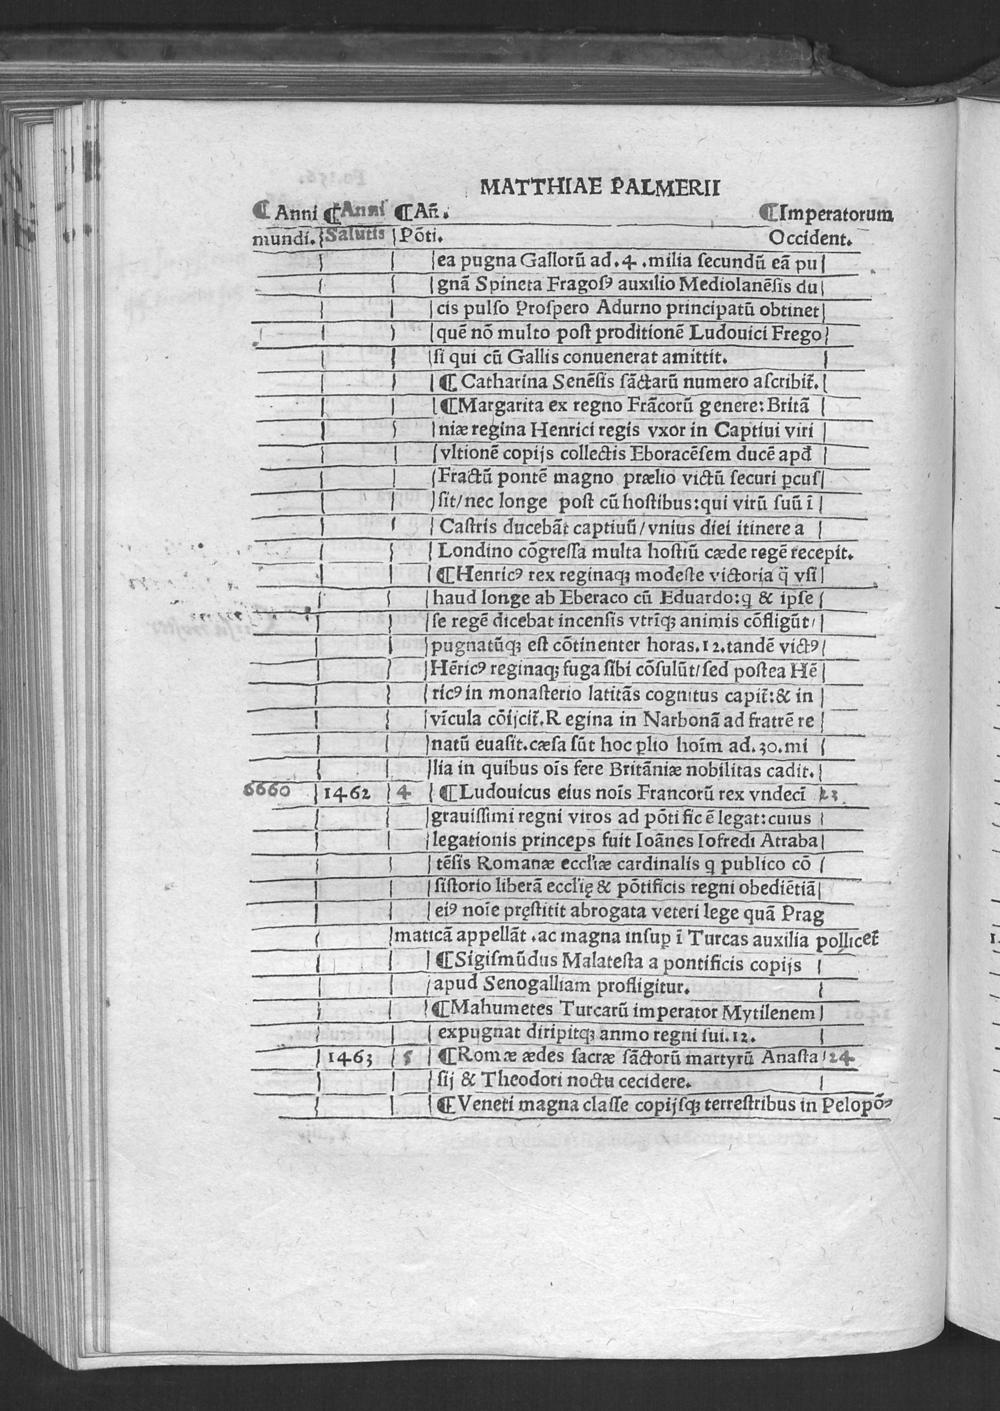 MATTHIAE PALMERII
¶ Anni ¶ Anni ¶ Añ. ¶ Imperatorum
mundi. Salutis Põti. Occident.
ea pugna Gallorũ ad. 4. milia ſecundũ eã pu
gnã Spineta Fragoſꝰ auxilio Mediolanẽſis du
cis pulſo Proſpero Adurno principatũ obtinet
quẽ nõ multo poſt proditionẽ Ludouici Frego
ſi qui cũ Gallis conuenerat amittit.
¶ Catharina Senẽſis ſãctarũ numero aſcribit̃.
¶ Margarita ex regno Frãcorũ genere: Britã
niæ regina Henrici regis vxor in Captiui viri
vltionẽ copijs collectis Eboracẽſem ducẽ apd̃
Fractũ pontẽ magno prælio victũ ſecuri ꝑcuſ
ſit/nec longe poſt cũ hoſtibus: qui virũ ſuũ ĩ
Caſtris ducebãt captiuũ/vnius diei itinere a
Londino cõgreſſa multa hoſtiũ cæde regẽ recepit.
¶ Henricꝰ rex reginaqꝫ modeſte victoria q̃ vſi
haud longe ab Eberaco cũ Eduardo: q & ipſe
ſe regẽ dicebat incenſis vtrĩqꝫ animis cõfligũt/
pugnatũqꝫ eſt cõtinenter horas. 12. tandẽ victꝰ
Hẽricꝰ reginaqꝫ fuga ſibi cõſulũt/ſed poſtea Hẽ
ricꝰ in monaſterio latitãs cognitus capit̃: & in
vĩcula cõijcit̃. Regina in Narbonã ad fratrẽ re
natũ euaſit. cæſa ſũt hoc p̃lio hoĩm ad. 30. mi
lia in quibus oĩs fere Britãniæ nobilitas cadit.
6660 1462 4 ¶ Ludouicus eius noĩs Francorũ rex vndecĩ 23
grauiſſimi regni viros ad põtificẽ legat: cuius
legationis princeps fuit Ioãnes Iofredi Atraba
tẽſis Romanæ eccl̃iæ cardinalis q publico cõ
ſiſtorio liberã eccl̃ię & põtificis regni obediẽtiã
eiꝰ noĩe pręſtitit abrogata veteri lege quã Prag
maticã appellãt. ac magna inſuꝑ ĩ Turcas auxilia pollicet̃
¶ Sigiſmũdus Malateſta a pontificis copijs
apud Senogalliam profligitur.
¶ Mahumetes Turcarũ imperator Mytilenem
expugnat diripitqꝫ anmo regni ſui. 12.
1463 5 ¶ Romæ ædes ſacræ ſãctorũ martyrũ Anaſta 24
ſij & Theodori noctu cecidere.
¶ Veneti magna claſſe copijſqꝫ terreſtribus in Pelopõꝰ